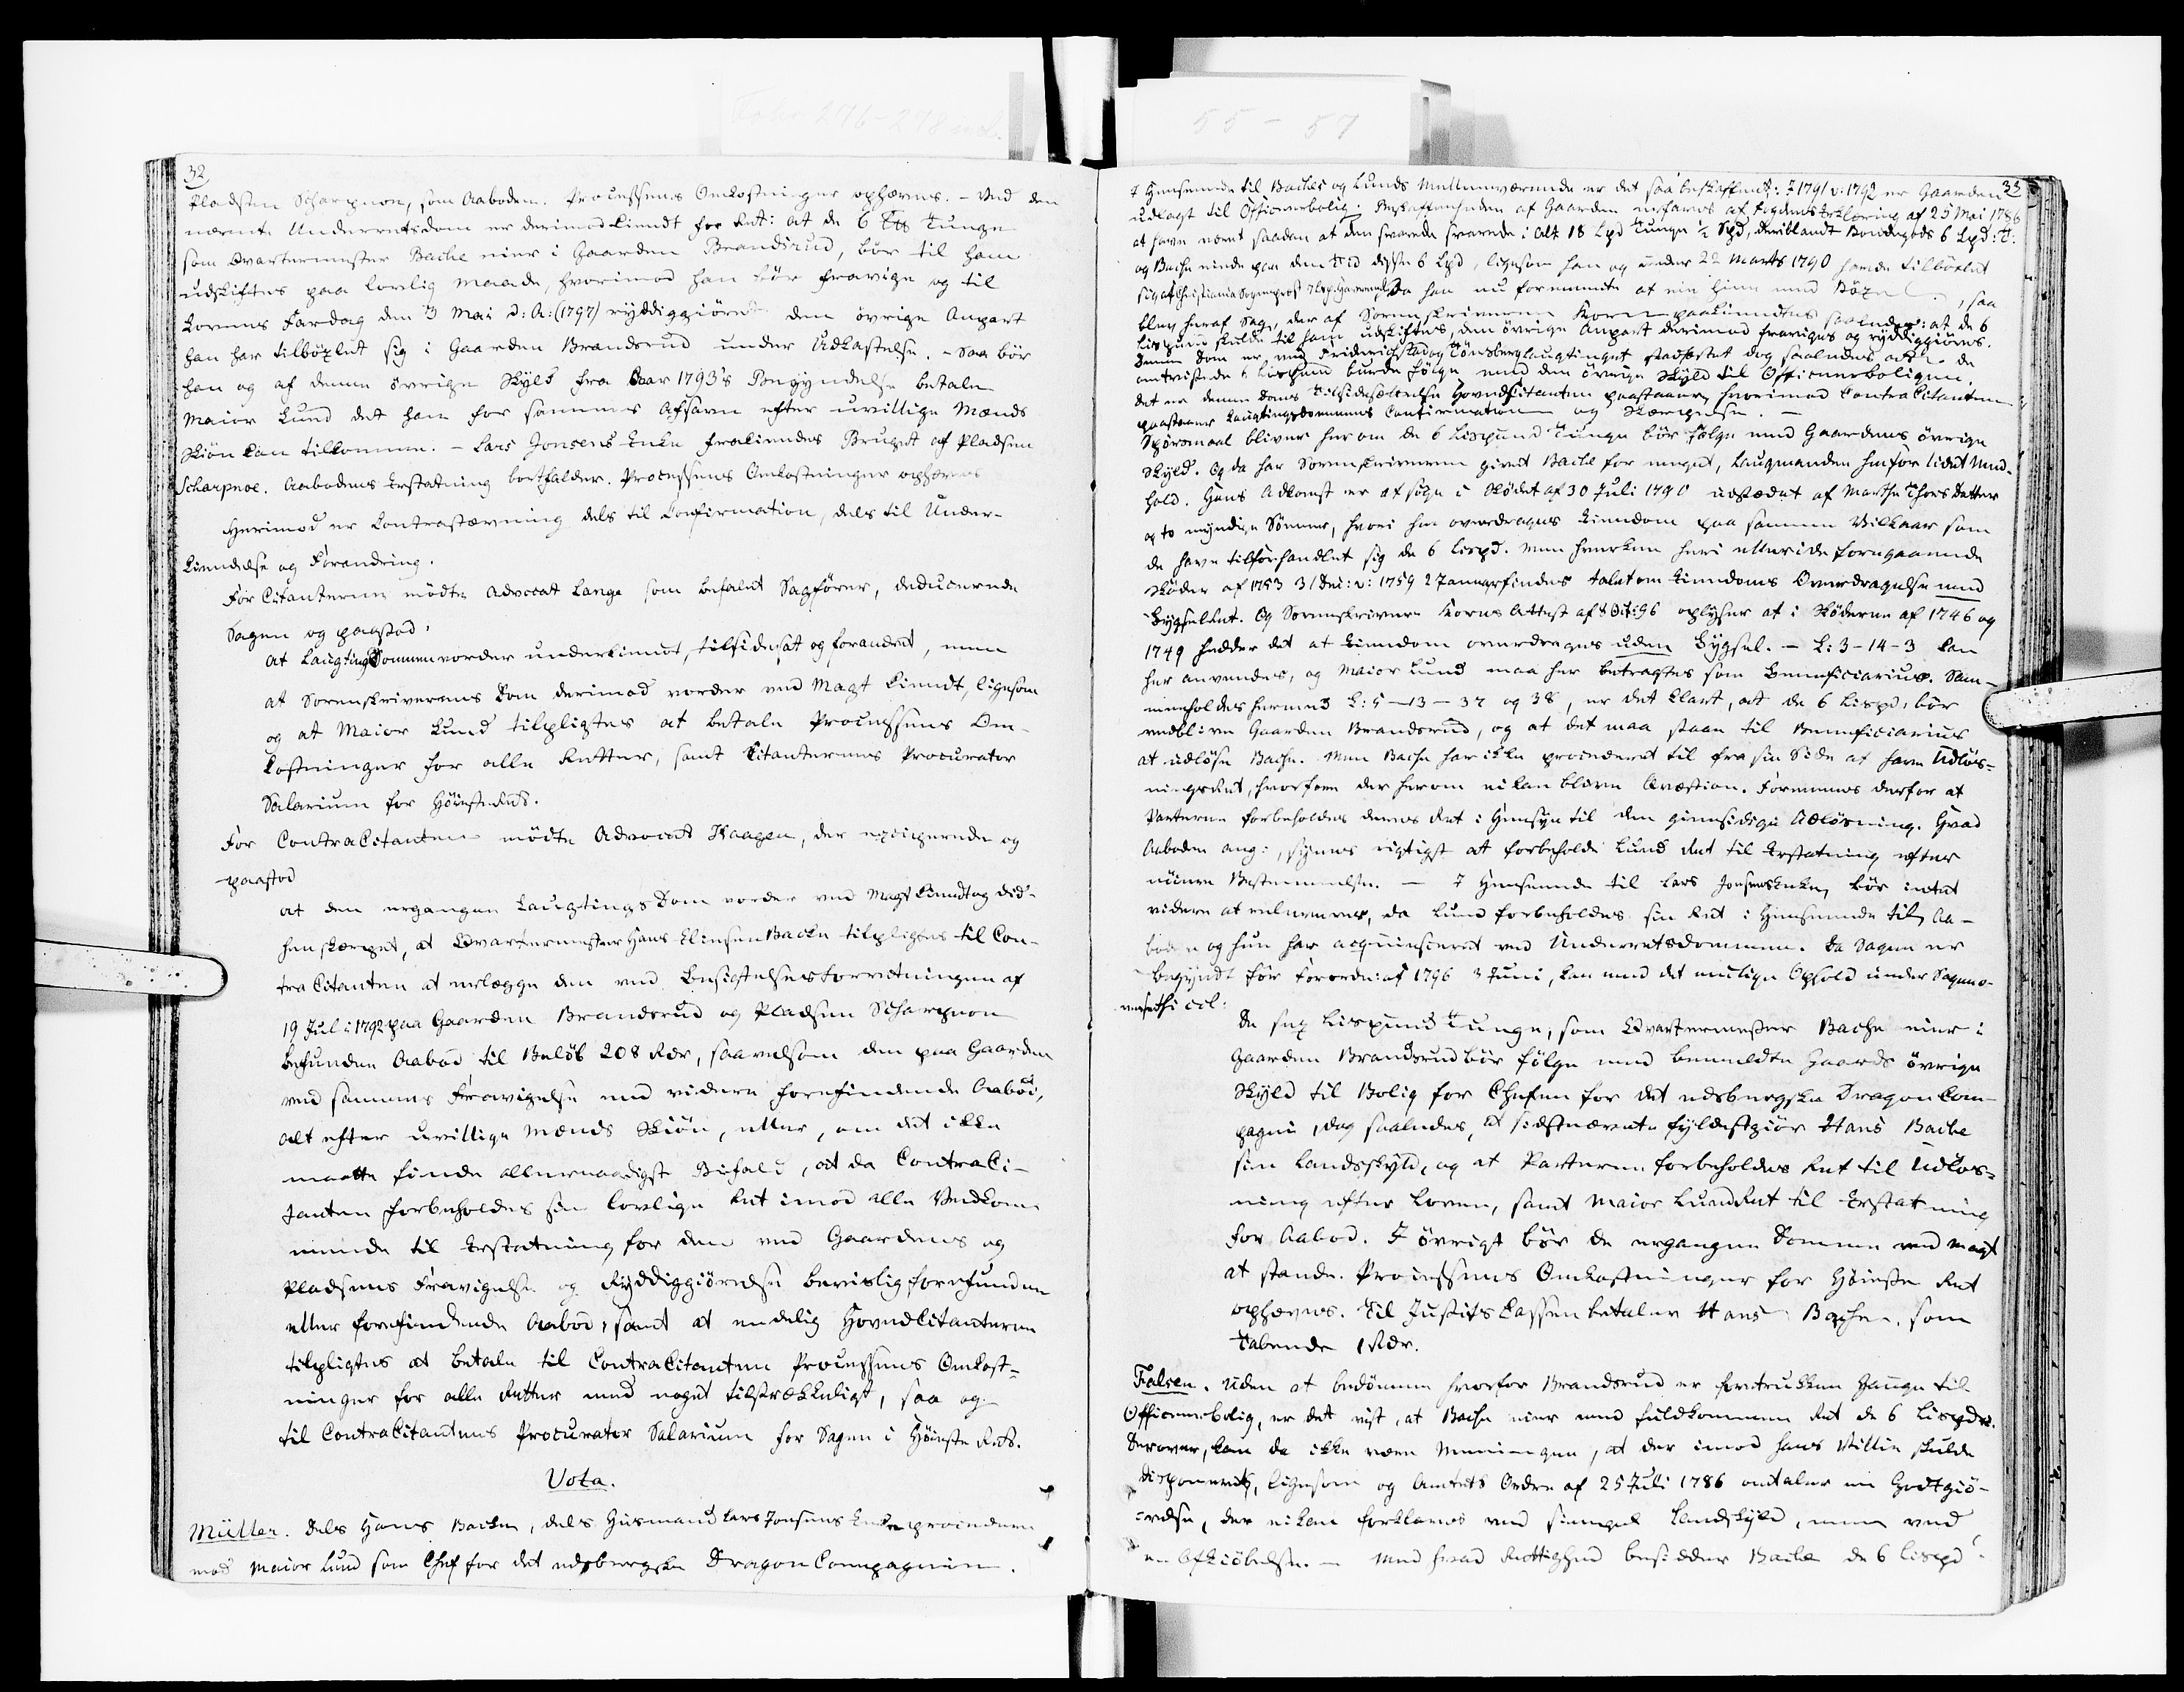 32
Pladsen Scharpnoe, som Aaboden. Processens Omkostninger ophæves. - Ved den
nævnte Underretsdom er derimod kiendt for Ret: at de 6 Tunge
som Qvartermester Bache eier i Gaarden Brandsrud, bör til ham
udskiftes paa lovlig maade, hvorimod han bör fravige og til
Lovens Fardag den 3 Mai d: A: (1797) ryddiggiöre den övrige Anpart
han har tilböxlet sig i Gaarden Brandsrud under Udkastelse. - Saa bör
han og af denne övrige Skyld fra Aar 1793's Begyndelse betale
Maior Lund det han for sammes Afsavn efter uvillige Mænds
Skiön kan tilkomme. - Lars Jonsens Enke frakiendes Bruget af Pladsen
Scharpnoe. Aabodens Erstatning bortfalder. Processens Omkostninger ophæves
Herimod er Contrastævning dels til Confirmation, dels til Under-
kiendelse og Forandring.
For Citanterne mödte Advocat Lange som befalet Sagförer, deducerede
Sagen og paastod:
at Laugtings Dommen vorder underkiendt, tilsidesat og forandret, men
at Sorenskriverens Dom derimod vorder ved Magt kiendt, ligesom
og at Maior Lund tilpligtes at betale Processens Om-
kostninger for alle Retter, samt Citanternes Procurator
Salarium for Höieste Ret.
For ContraCitanten mödte Advocat Haagen, der excipierede og
paastod
at den ergangne Laugtings Dom vorder ved Magt kiendt og des-
hen skærpet, at Qvartermester Hans Eliesen Bache tilpligtes til Con-
traCitanten at erlægge den ved Besigtelses Forretningen af
19 Juli 1792 paa Gaarden Brandsrud og Pladsen Scharpnoe
befundne Aabod til Belöb 208 Rdr, saavelsom den paa Gaarden
ved sammes Fravigelse end videre forefindende Aabod,
alt efter uvillige Mænds Skiön, eller, om det ikke
maatte finde allernaadigst Bifald, at da ContraCi-
tanten forbeholdes sin lovlige Ret imod alle Vedkom-
mende til Erstatning for den ved Gaardens og
Pladsens Fravigelse og Ryddiggiörelse bevislig forefundne
eller forefindende Aabod, samt at endelig HovedCitanterne
tilpligtes at betale til ContraCitanten Processens Omkost-
ninger for alle Retter med noget tilstrækkeligt, saa og
til ContraCitantens Procurator Salarium for Sagen i Höieste Ret.
Vota.
Müller. Dels Hans Bache, dels Husmand Lars Jonsens Enke procederer
mod Maior Lund som Chef for det edsbergske Dragon Compagnie.
33
I Henseende til Baches og Lunds Mellemværende er det saa beskaffent: I 1791 v: 1792 er Gaarden
udlagt til Officeerbolig. Beskaffenheden af Gaarden erfares af Fogdens Erklæring af 25 Mai 1786
at have været saaden at den svarede i Alt 18 Lpd Tunge ½ Spd, deriblandt Bondegods 6 Lpd: T.
og Bache eiede paa den Tid disse 6 Lpd, ligesom han og under 22 Marts 1790 havde tilböxlet
sig af Christiania Sogneprest. Da han nu formeente at eie hine med Böxel, saa
blev heraf Sag, der af Sorenskriveren Korn paakiendtes saaledes: at de 6
Lispund skulde til ham udskiftes, den övrige Anpart derimod fraviges og ryddiggiöres.
Denne Dom er ved Friderichstad og Tönsberg Laugtinget stadfæstet dog saaledes at de
omtvistede 6 Lispund burde fölge med den övrige Skyld til Officeerboligen.
Det er denne Doms Tilsidesættelse HovedCitanten paastaaer, hvorimod ContraCitanten
paastaaer Laugtingsdommens Confirmation og Skærpelse. -
Spörsmaal bliver her om de 6 Lispund Tunge bör fölge med Gaardens övrige
Skyld. Og da har Sorenskriveren givet Bache for meget, Laugmanden herfor lidet Med-
hold. Hans Adkomst er at söge i Skiödet af 30 Juli 1790 udstædet af Marthe Thors Datter
og to myndige Sönner, hvori hun overdrages Eiendom paa samme Vilkaar som
de have tilforhandlet sig de 6 Lispd. Men hverken heri eller i de foregaaende
Skiöder af 1753 31 Dec: v: 1759 2 Januar findes talet om Eiendoms Overdragelse med
Bygselret. Og Sorenskriver Korns Attest af 8 Oct: 96 oplyser at i Skiöderne af 1746 og
1749 hedder det at Eiendom overdrages uden Bygsel. - L: 3-14-3 kan
her anvendes, og Maior Lund maa her betragtes som Beneficiarius. Sam-
menholdes hermed L: 5-13-37 og 38, er det klart, at de 6 Lispd: bör
vedblive Gaarden Brandsrud, og at det maa staae til Beneficiarius
at udlöse Bache. Men Bache har ikke procederet til fra sin Side at have Udlös-
ningsret, hvorfore der herom ei kan blive Qvæstion. Formenes derfor at
Parterne forbeholdes deres Ret i Hensyn til den giensidige Udlösning. Hvad
Aaboden ang:, synes rigtigst at forbeholde Lund Ret til Erstatning efter
nüiere Bestemmelse. - I Henseende til Lars Jonsens Enke, bör intet
videre at erkendes, da Lund forbeholdes sin Ret i Henseende til Aa-
boden og hun har acquiesceret ved Underretsdommen. Da Sagen er
begyndt för Forordn: af 1796 3 Juni, kan med det muelige Ophold under Sagen o-
versees thi ccl:
De sex Lispund Tunge, som Qvartermester Bache eier i
Gaarden Brandsrud bör fölge med bemeldte Gaards övrige
Skyld til Bolig for Chefen for det edsbergske Dragon Com-
pagnie, dog saaledes, at sidstnævnte fyldestgiör Hans Bache
sin Landskyld, og at Parterne forbeholdes Ret til Udlös-
ning efter Loven, samt Maior Lund Ret til Erstatning
for Aabod. I övrigt bör de ergangne Domme ved Magt
at stande. Processens Omkostninger for Höieste Ret
ophæves. Til Justits Cassen betaler Hans Bache, som
tabende 1 Rdr.
Falsen. Uden at bedömme hvorfor Brandsrud er foretrukken Hauge til
Officeerbolig, er det vist, at Bache eier med fuldkommen Ret de 6 Lispd.
Derover, kan da ikke være Meeningen, at der imod hans Villie skulde
disponeres, ligesom og Amtets Ordre af 25 Juli 1786 omtaler en Godtgiö-
relse, der ei kan forklares ved simpel Landskyld, men ved
en Afkiöbelse. - Med hvad Rettighed besidder Bache de 6 Lispd?